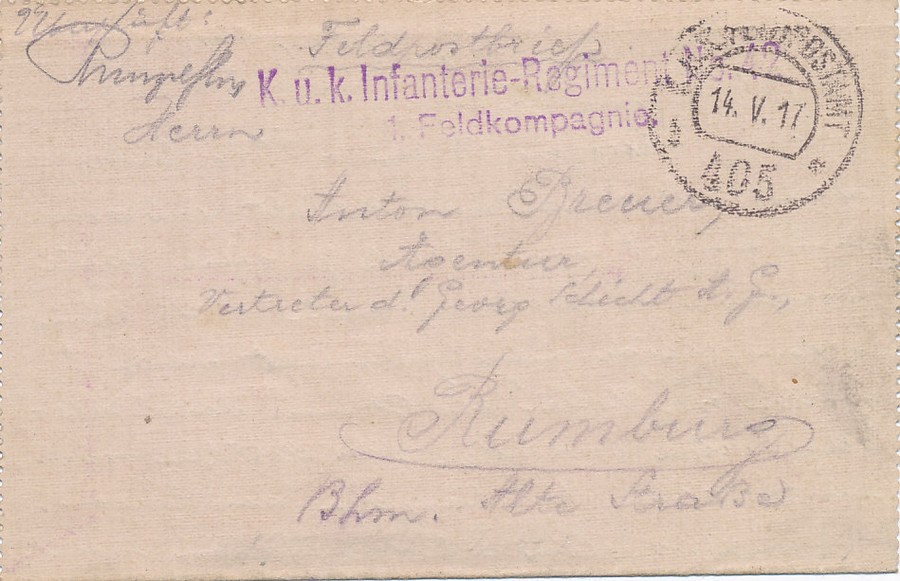 Feldpostbrief
K. u. k. Infanterie-Regiment No. 42
1. Feldkompagnie.
POSTAMT
14. V. 17
405
Herrn
Anton Breuer,
Agentur,
Vertreter d. Georg Schicht A. G.,
Rumburg
Bhm. Alte Straße